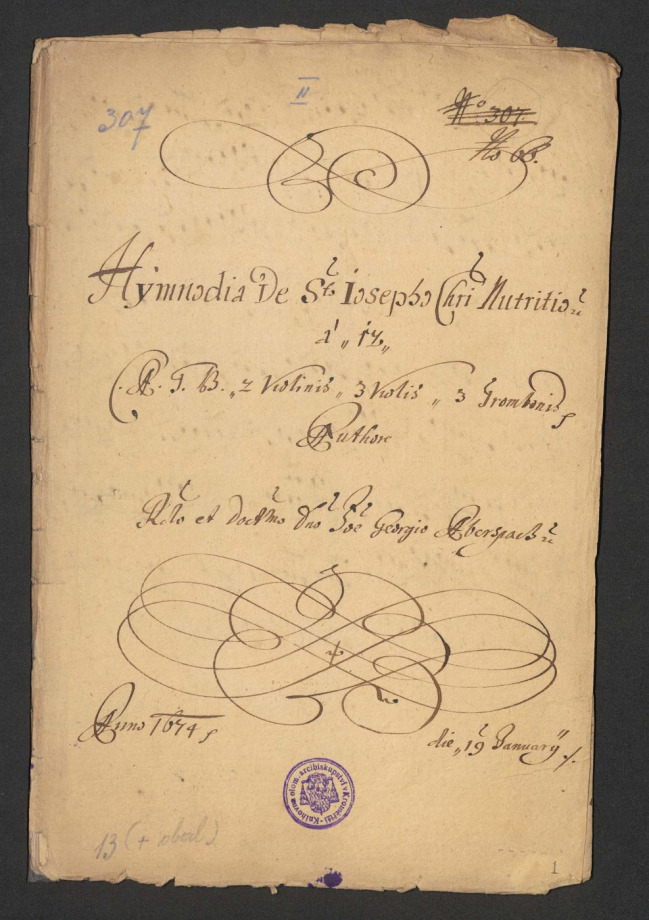 II
307
No 307.
No 68.
Hÿmnodia De Sto Iosepho Chri Nutritio
a' „ 12 „
C. A. T. B. „ 2 Violinis „ 3 Violis „ 3 Trombonis
Authore
Rdo et Doctmo Dno Joe Georgio Aberspach
Anno 1674
die „ 19 January
Knihovna olom. arcibiskupství v Kroměříži
13 (+ obal)
1